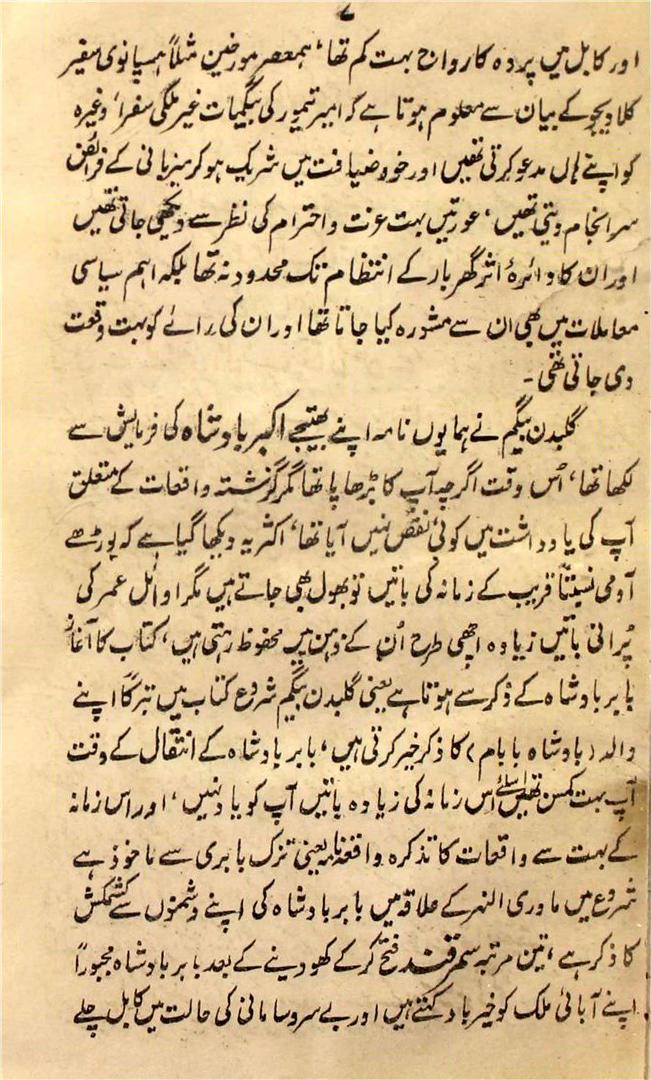 ۷
اور کابل میں پردہ کا رواج بہت کم تھا، ہمعصر مورخین مثلاً ہسپانوی سفیر
کلاویجو کے بیان سے معلوم ہوتا ہے کہ امیر تیمور کی بیگمات غیر ملکی سفراء وغیرہ
کو اپنے ہاں مدعو کرتی تھیں اور خود ضیافت میں شریک ہو کر میزبانی کے فرائض
سرانجام دیتی تھیں، عورتیں بہت عزت و احترام کی نظر سے دیکھی جاتی تھیں
اور ان کا دائرۂ اثر گھر بار کے انتظام تک محدود نہ تھا بلکہ اہم سیاسی
معاملات میں بھی ان سے مشورہ کیا جاتا تھا اور ان کی رائے کو بہت وقعت
دی جاتی تھی۔
گلبدن بیگم نے ہمایوں نامہ اپنے بھتیجے اکبر بادشاہ کی فرمایش سے
لکھا تھا، اُس وقت اگرچہ آپ کا بڑھاپا تھا مگر گزشتہ واقعات کے متعلق
آپ کی یادداشت میں کوئی نقص نہیں آیا تھا، اکثر یہ دیکھا گیا ہے کہ بوڑھے
آدمی نسبتاً قریب کے زمانہ کی باتیں تو بھول بھی جاتے ہیں مگر اوائل عمر کی
پُرانی باتیں زیادہ اچھی طرح اُن کے ذہن میں محفوظ رہتی ہیں، کتاب کا آغاز
بابر بادشاہ کے ذکر سے ہوتا ہے یعنی گلبدن بیگم شروع کتاب میں تبرکاً اپنے
والد (بادشاہ بابام) کا ذکر خیر کرتی ہیں، بابر بادشاہ کے انتقال کے وقت
آپ بہت کمسن تھیں اسلئے اس زمانہ کی زیادہ باتیں آپ کو یاد نہیں، اور اس زمانہ
کے بہت سے واقعات کا تذکرہ واقعہ نامہ یعنی تزک بابری سے ماخوذ ہے
شروع میں ماوری النہر کے علاقہ میں بابر بادشاہ کی اپنے دشمنوں سے کشمکش
کا ذکر ہے، تین مرتبہ سمرقند فتح کر کے کھو دینے کے بعد بابر بادشاہ مجبوراً
اپنے آبائی ملک کو خیرباد کہتے ہیں اور بے سرو سامانی کی حالت میں کابل چلے